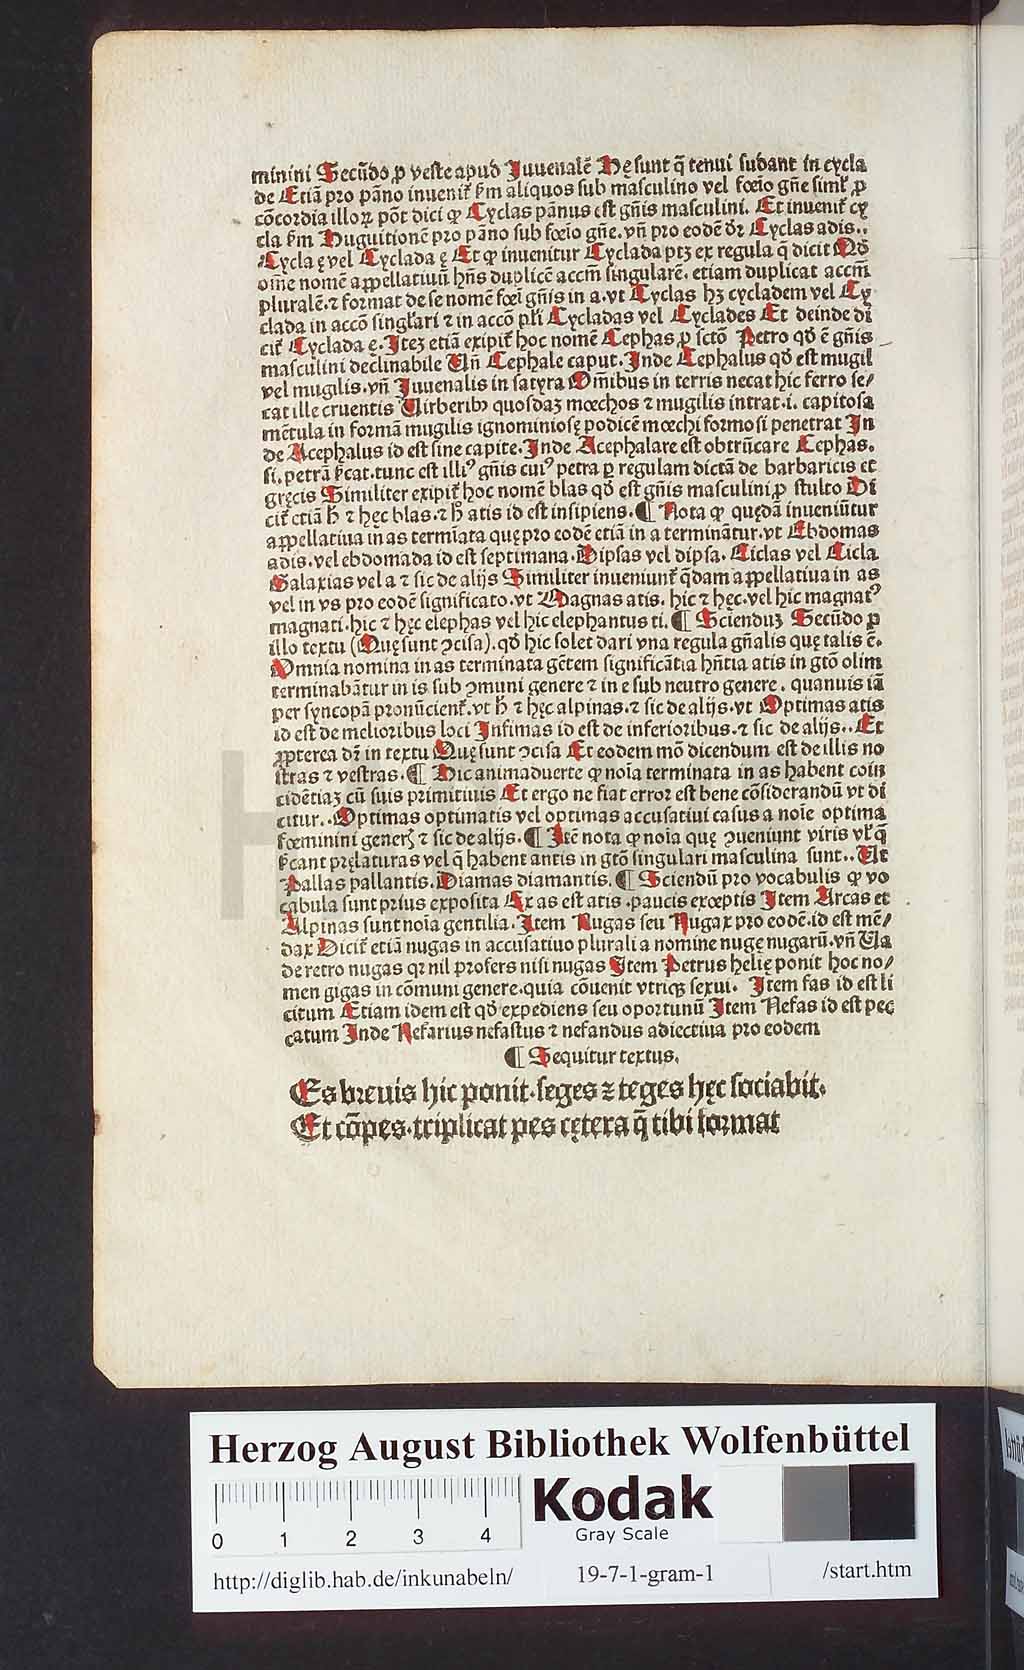 minini Secūdo ꝓ veste apud Juuenalē Hę sunt q̄ tenui sudant in cycla
de Etiā pro pāno inuenit̉ ẜm aliquos sub masculino vel fœīo gn̄e simt̉ ꝓ
cōcordia illoꝝ pōt dici ꝙ Cyclas pānus est gn̄is masculini. Et inuenit̉ cy
cla ẜm Huguitionē pro pāno sub fœīo gn̄e. vn̄ pro eodē dr̄ Cyclas adis..
Cycla ę vel Cyclada ę Et ꝙ inuenitur Cyclada ptꝫ ex regula q̄ dicit Qđ
om̄e nomē appellatiuū hn̄s duplicē accm̄ singularē. etiam duplicat accm̄
pluralē. ⁊ format de se nomē fœī gn̄is in a. vt Cyclas hꝫ cycladem vel Cy
clada in accō singl̉ari ⁊ in accō pl̉i Cycladas vel Cyclades Et deinde di
cit̉ Cyclada ę. Iteꝫ etiā exipit̉ hoc nomē Cephas, ꝓ sctō Petro qđ ē gn̄is
masculini declinabile Un̄ Cephale caput. Inde Cephalus qđ est mugil
vel mugilis. vn̄ Juuenalis in satyra Om̄ibus in terris necat hic ferro se/
cat ille cruentis Uirberibꝫ quosdaꝫ mœchos ⁊ mugilis intrat. i. capitosa
mētula in formā mugilis ignominiosę podicē mœchi formosi penetrat In
de Acephalus id est sine capite. Inde Acephalare est obtrūcare Cephas.
si. petrā ẜcat. tunc est illiꝰ gn̄is cuiꝰ petra ꝑ regulam dictā de barbaricis et
gręcis Similiter exipit̉ hoc nomē blas qđ est gn̄is masculini ꝓ stulto Di
cit̉ etiā ħ ⁊ hęc blas. ⁊ ħ atis id est insipiens. ¶ Nota ꝙ quędā inueniūtur
appellatiua in as termīata quę pro eodē etiā in a terminātur. vt Ebdomas
adis. vel ebdomada id est septimana. Dipsas vel dipsa. Ciclas vel Cicla
Galaxias vel a ⁊ sic de alijs Similiter inueniunt̉ q̄dam appellatiua in as
vel in vs pro eodē significato. vt Magnas atis. hic ⁊ hęc. vel hic magnatꝰ
magnati. hic ⁊ hęc elephas vel hic elephantus ti. ¶ Scienduꝫ Secūdo ꝓ
illo textu (Quę sunt ↄcisa). qđ hic solet dari vna regula gn̄alis quę talis ē.
Omnia nomina in as terminata gētem significātia hn̄tia atis in gtō olim
terminabātur in is sub ↄmuni genere ⁊ in e sub neutro genere. quanuis iā
per syncopā pronūcient̉. vt ħ ⁊ hęc alpinas. ⁊ sic de alijs. vt Optimas atis
id est de melioribus loci Infimas id est de inferioribus. ⁊ sic de alijs.. Et
ꝓpterea dr̄ in textu Quę sunt ↄcisa Et eodem mō dicendum est de illis no
stras ⁊ vestras. ¶ Hic animaduerte ꝙ noīa terminata in as habent coin
cidētiaꝫ cū suis primitiuis Et ergo ne fiat error est bene cōsiderandū vt di
citur.. Optimas optimatis vel optimas accusatiui casus a noīe optima
fœminini generꝭ ⁊ sic de alijs. ¶ Itē nota ꝙ noīa quę ↄueniunt viris vl̉ q̄
ẜcant pręlaturas vel q̄ habent antis in gtō singulari masculina sunt.. Ut
Pallas pallantis. Diamas diamantis. ¶ Sciendū pro vocabulis ꝙ vo
cabula sunt prius exposita Ar as est atis. paucis exceptis Item Arcas et
Alpinas sunt noīa gentilia. Item Nugas seu Nugax pro eodē. id est mē/
dax Dicit̉ etiā nugas in accusatiuo plurali a nomine nugę nugarū. vn̄ Ua
de retro nugas qꝛ nil profers nisi nugas Item Petrus helię ponit hoc no/
men gigas in cōmuni genere. quia cōuenit vtriqꝫ sexui. Item fas id est li
citum Etiam idem est qđ expediens seu oportunū Item Nefas id est pec
catum Inde Nefarius nefastus ⁊ nefandus adiectiua pro eodem
¶ Sequitur textus.
Es breuis hic ponit. seges ⁊ teges hęc sociabit.
Et cōpes. triplicat pes cętera q̄ tibi format
Herzog August Bibliothek Wolfenbüttel
Kodak
Gray Scale
0 1 2 3 4
http://diglib.hab.de/inkunabeln/ 19-7-1-gram-1 /start.htm